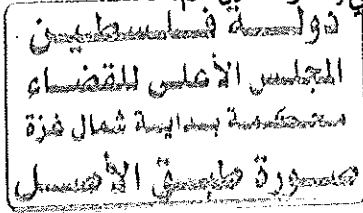 دولة فلسطين
المجلس الأعلى للقضاء
محكمة بداية شمال غزة
صورة طبق الأصل